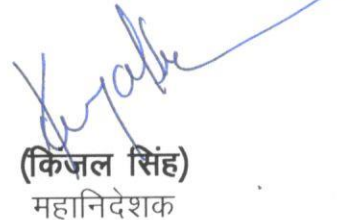 (किंजल सिंह)
महानिदेशक